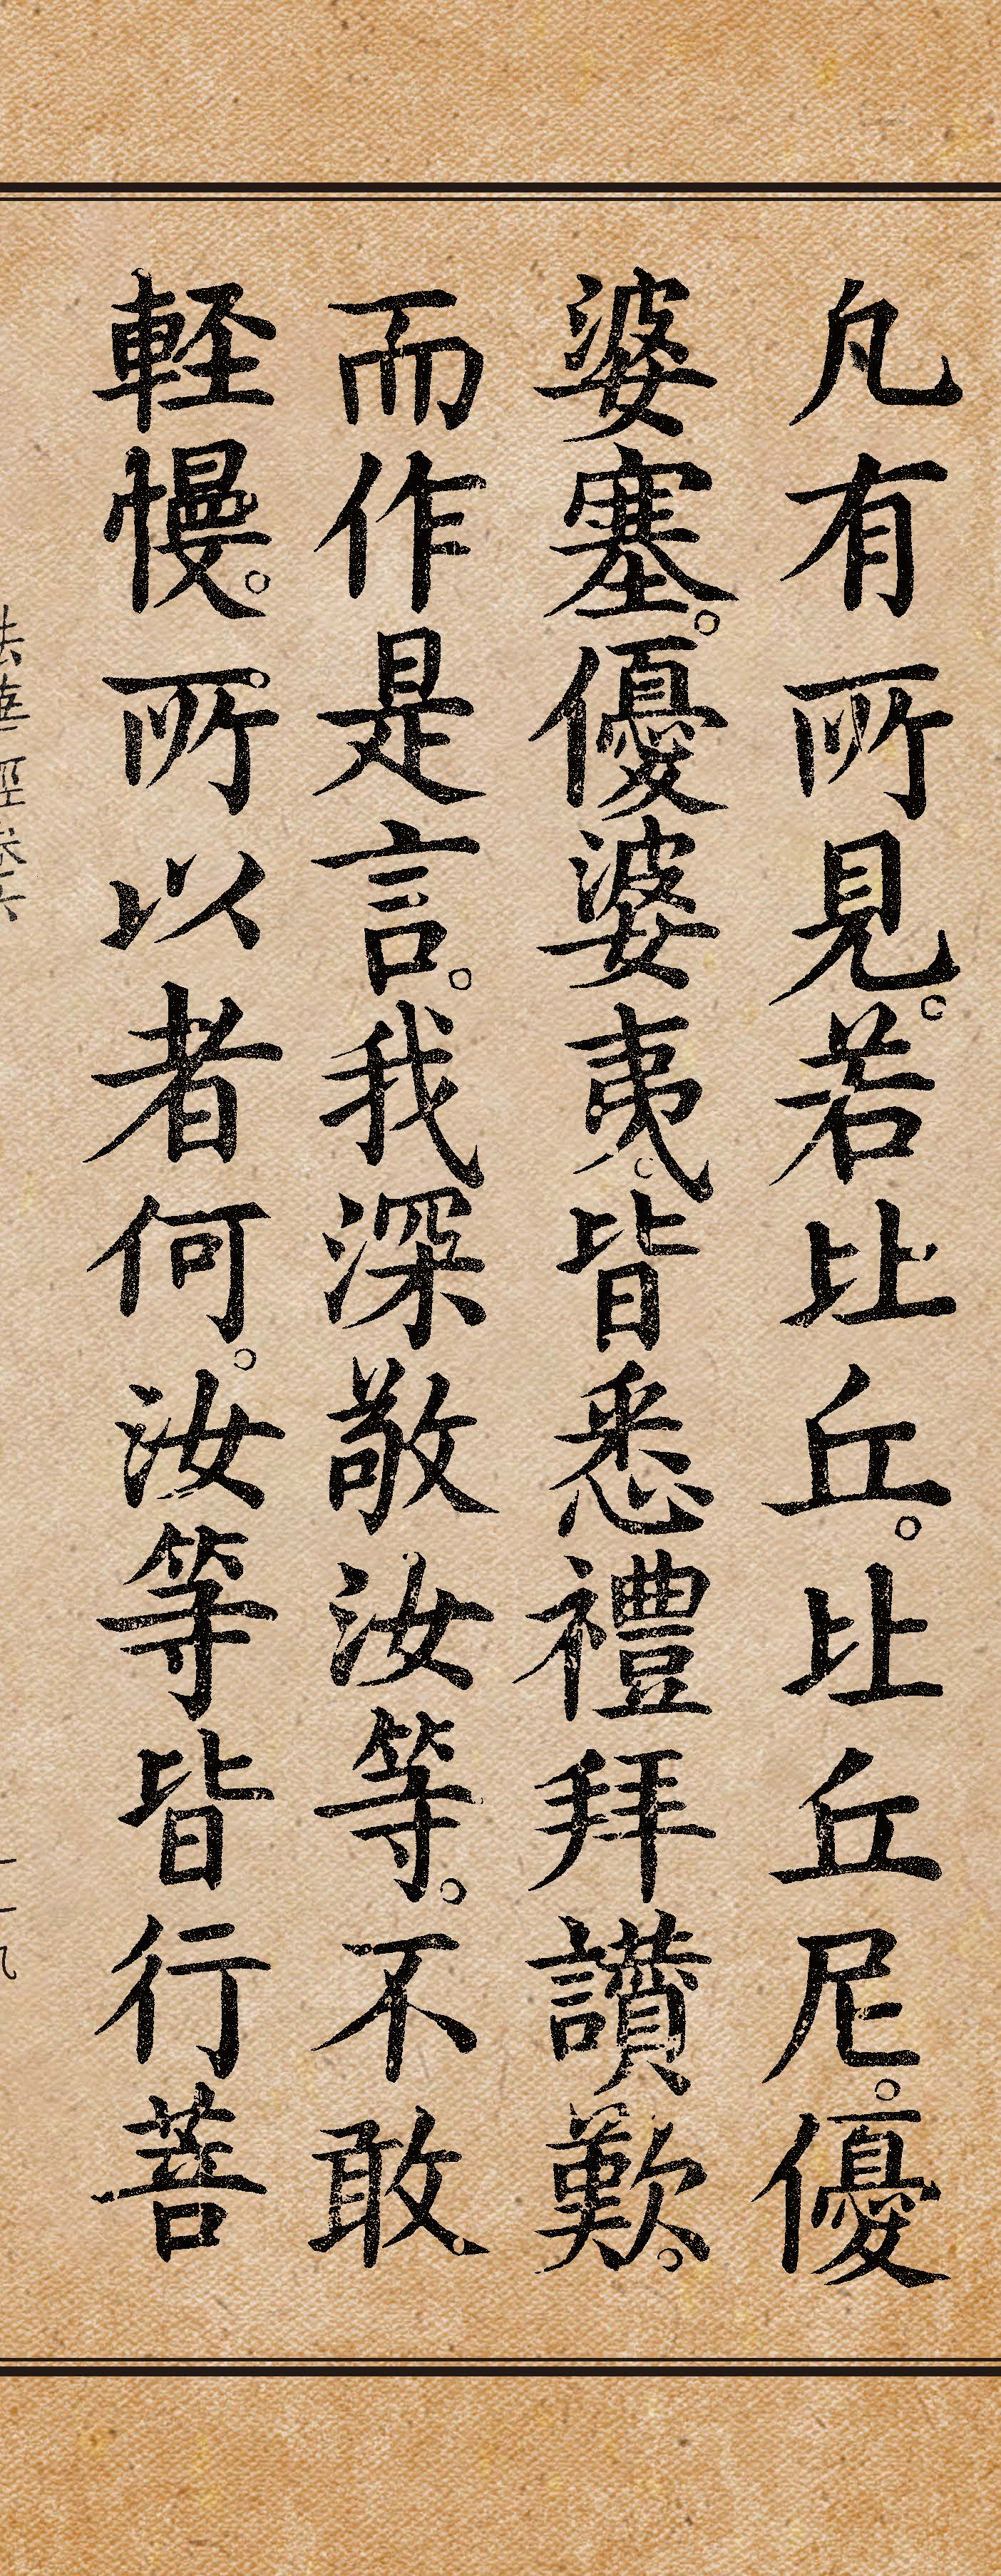 凡有所見。若比丘。比丘尼。優
婆塞。優婆夷。皆悉禮拜讃歎。
而作是言。我深敬汝等。不敢
輕慢。所以者何。汝等皆行菩
法華經卷六